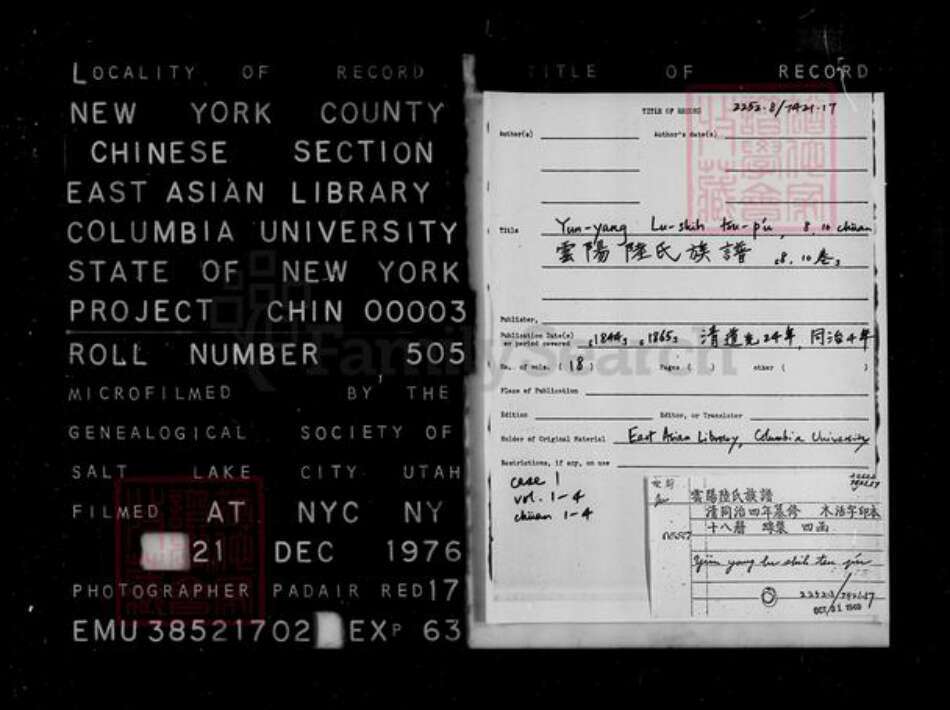 LOCALITY OF RECORD
NEW YORK COUNTY
CHINESE SECTION
EAST ASIAN LIBRARY
COLUMBIA UNIVERSITY
STATE OF NEW YORK
PROJECT CHIN 00003
ROLL NUMBER 505
MICROFILMED BY THE
GENEALOGICAL SOCIETY OF
SALT LAKE CITY UTAH
FILMED AT NYC NY
21 DEC 1976
PHOTOGRAPHER PADAIR RED 17
EMU 38521702 EXP 63
TITLE OF RECORD
TITLE OF RECORD 2252.8/7421.17
Author(s) Author's date(s)
Title Yun-yang Lu-shih tsu-p'u, 8, 10 chüan
雲陽陸氏族譜 [8, 10 卷]
Publisher,
Publication Date(s) or period covered [1844], [1865] 清道光24年, 同治4年
No. of vols. (18) Pages ( ) other ( )
Place of Publication
Edition Editor, or Translator
Holder of Original Material East Asian Library, Columbia University
Restrictions, if any, on use
case 1
vol. 1-4
chüan 1-4
雲陽陸氏族譜
清同治四年 修 木活字印本
十八冊 四函
Yün yang lu shih tsu p'u
2252.8/7421.17
OCT 21 1969
FamilySearch